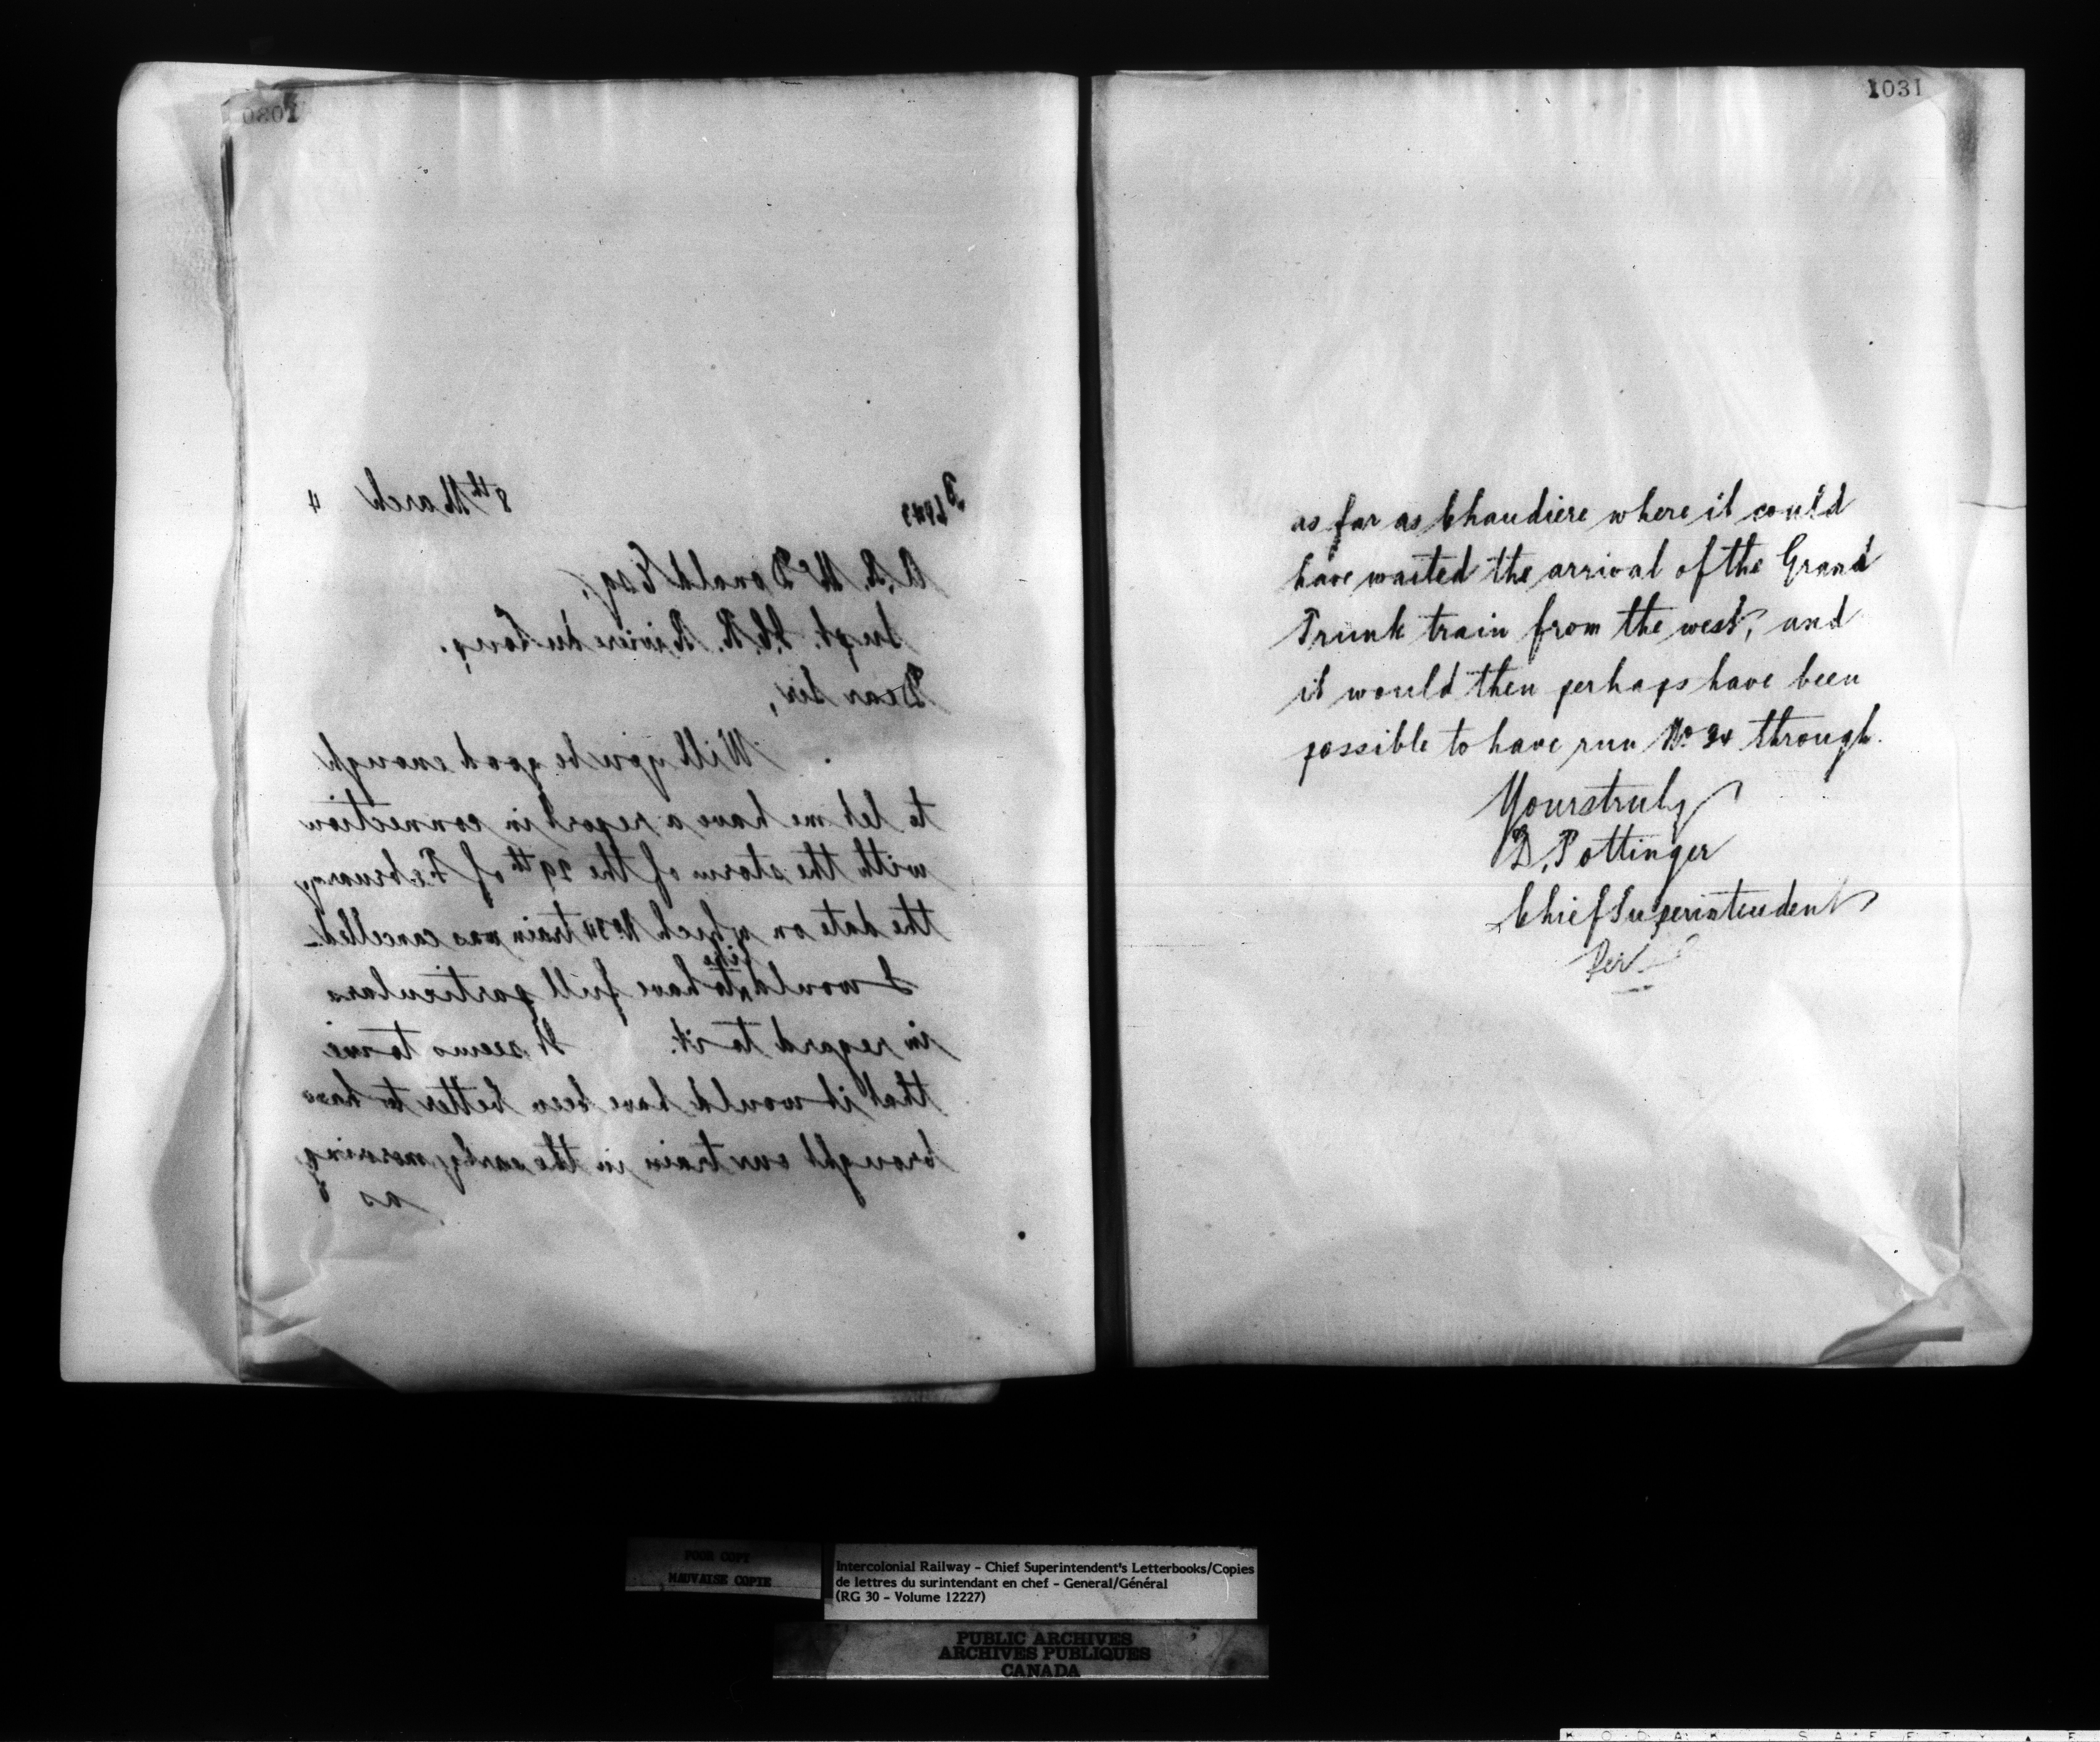 1030
8th March 4
A. R. McDonald Esq,
Supt. I.C.R. Riviere du Loup.
Dear Sir,
Will you be good enough
to let me have a report in connection
with the storm of the 29th of February
the date on which No 34 train was cancelled.
I would like to have full particulars
in regard to it. It seems to me
that it would have been better to have
brought our train in the early morning
as
1031
as far as Chaudiere where it could
have waited the arrival of the Grand
Trunk train from the west, and
it would then perhaps have been
possible to have run No 34 through.
Yours truly
D. Pottinger
Chief Superintendent
Per
POOR COPY
MAUVAISE COPIE
Intercolonial Railway - Chief Superintendent's Letterbooks/Copies
de lettres du surintendant en chef - General/Général
(RG 30 - Volume 12227)
PUBLIC ARCHIVES
ARCHIVES PUBLIQUES
CANADA
KODAK SAFETY